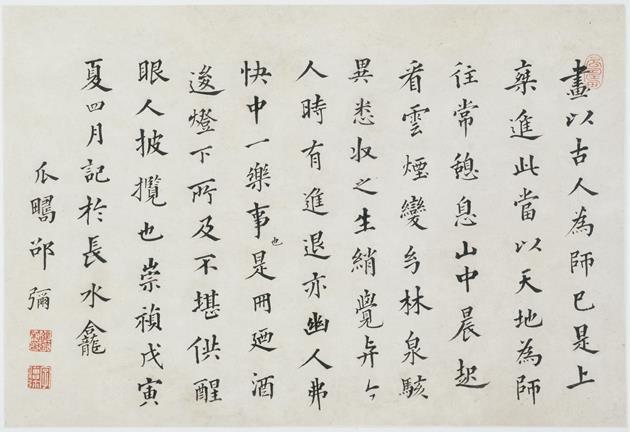 畫以古人為師已是上
乘進此當以天地為師
往常憩息山中晨起
看雲煙變幻林泉駭
異悉收之生綃覺與今
人時有進退亦幽人弗
快中一樂事也是冊廼酒
後燈下所及不堪供醒
眼人披攬也崇禎戊寅
夏四月記於長水龕
瓜疇邵彌